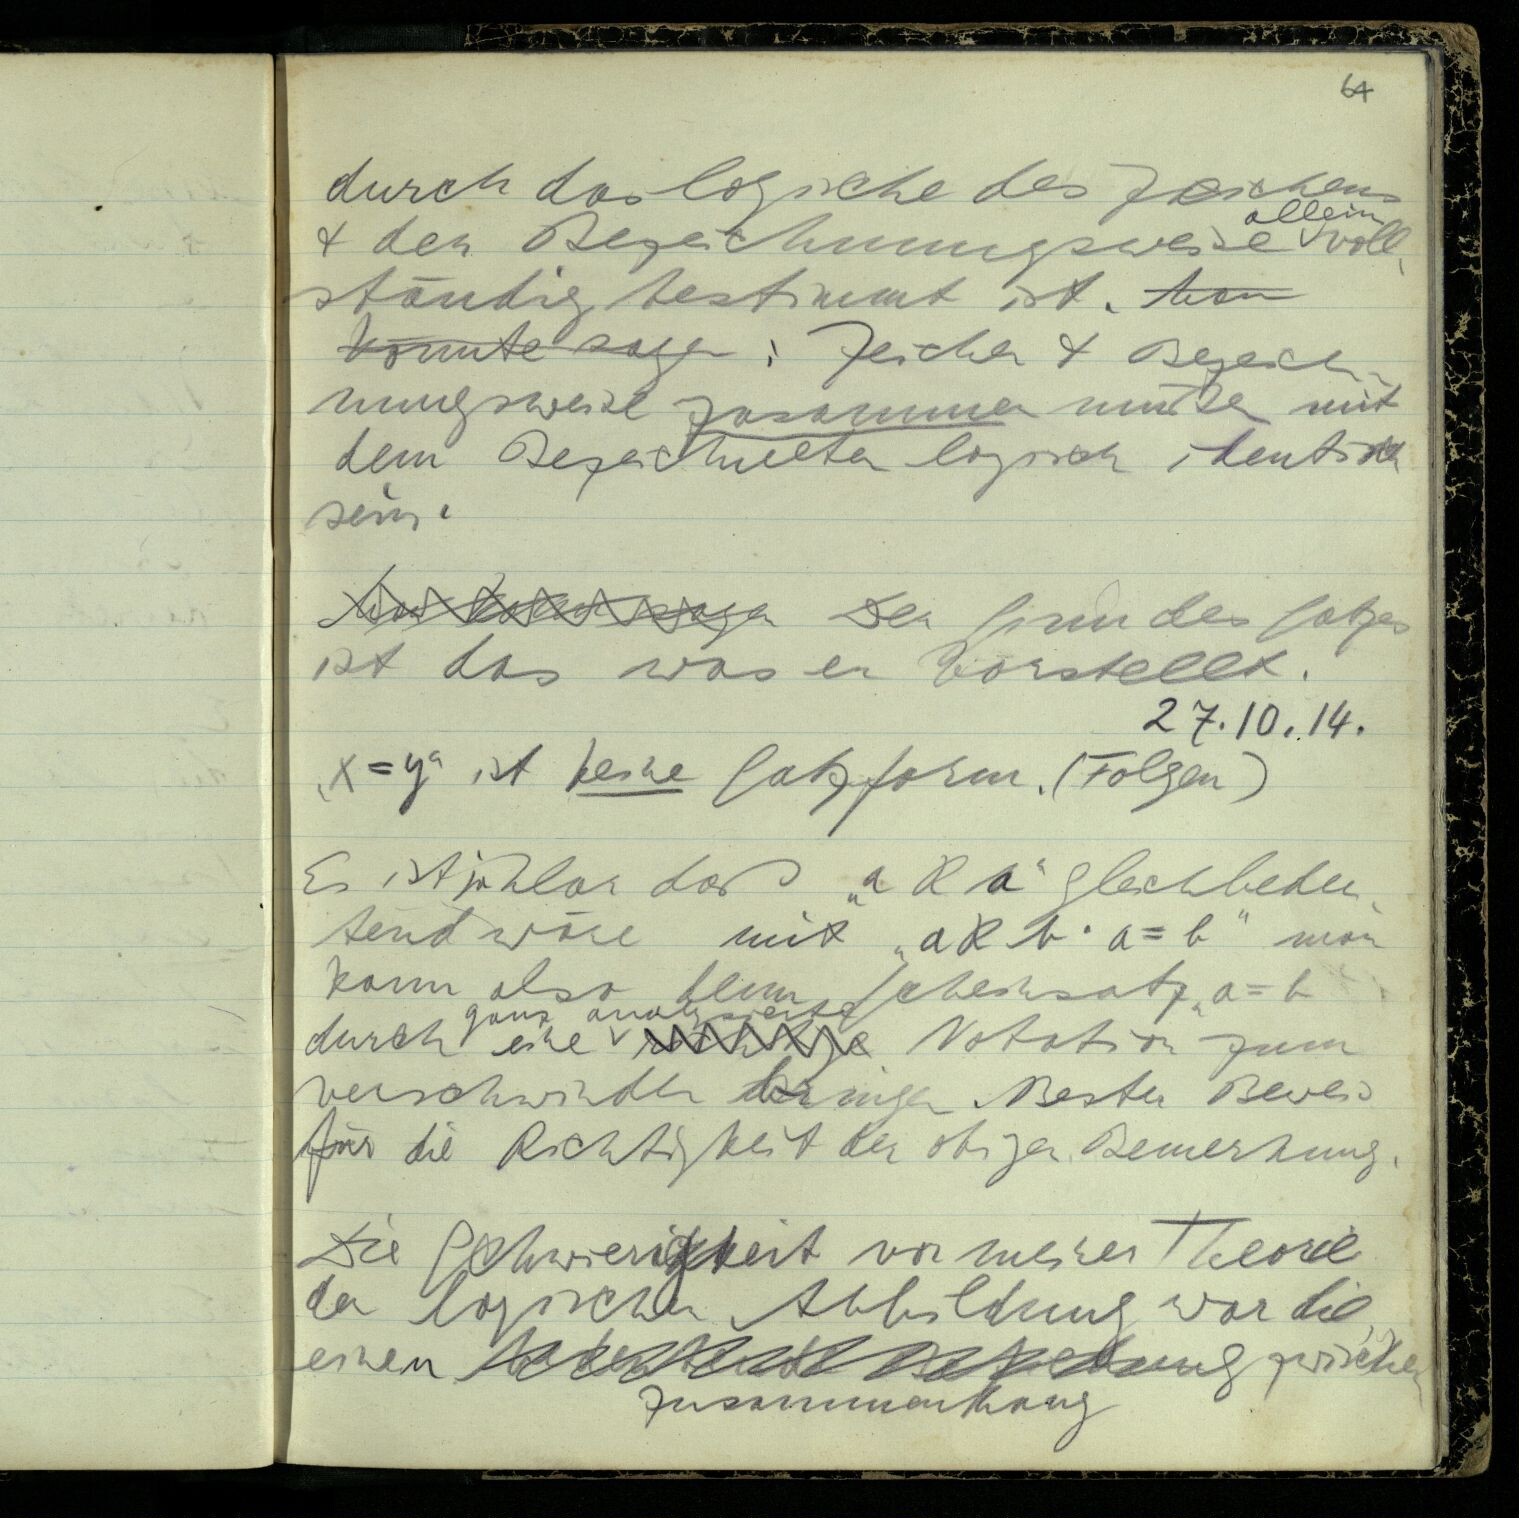 64
durch das logische des Zeichens
& der Bezeichnungsweise allein voll-
ständig bestimmt ist. Man
könnte sagen: Zeichen & Bezeich-
nungsweise zusammen müßen mit
dem Bezeichneten logisch identisch
sein.
Man könnte sagen Der Sinn des Satzes
ist das was er vorstellt.
27.10.14.
„x=y“ ist keine Satzform. (Folgen)
Es ist ja klar daß „aRa“ gleichbedeu-
tend wäre mit „aRb·a=b“ man
kann also den Scheinsatz „a=b
durch eine ganz analysierte Notation zum
verschwinden bringen. Bester Beweis
für die Richtigkeit der obigen Bemerkung.
Die Schwierigkeit vor meiner Theorie
der logischen Abbildung war die,
einen zwischen
Zusammenhang